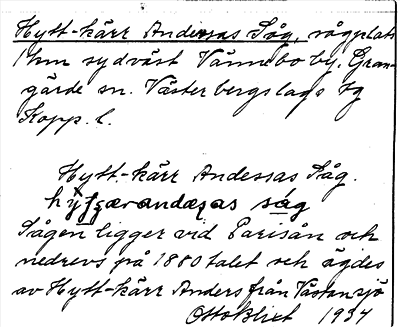 Hytt-kärr Andersas Såg, sågplats
1 km sydväst Vännebo by, Gran-
gärde sn. Västerbergslags tg
Kopp. l.
Hytt-kärr Andersas Såg.
såg
Sågen ligger vid Parisån och
nedrevs på 1880 talet och ägdes
av Hytt-kärr Anders från Västansjö
Otto Blixt 1934